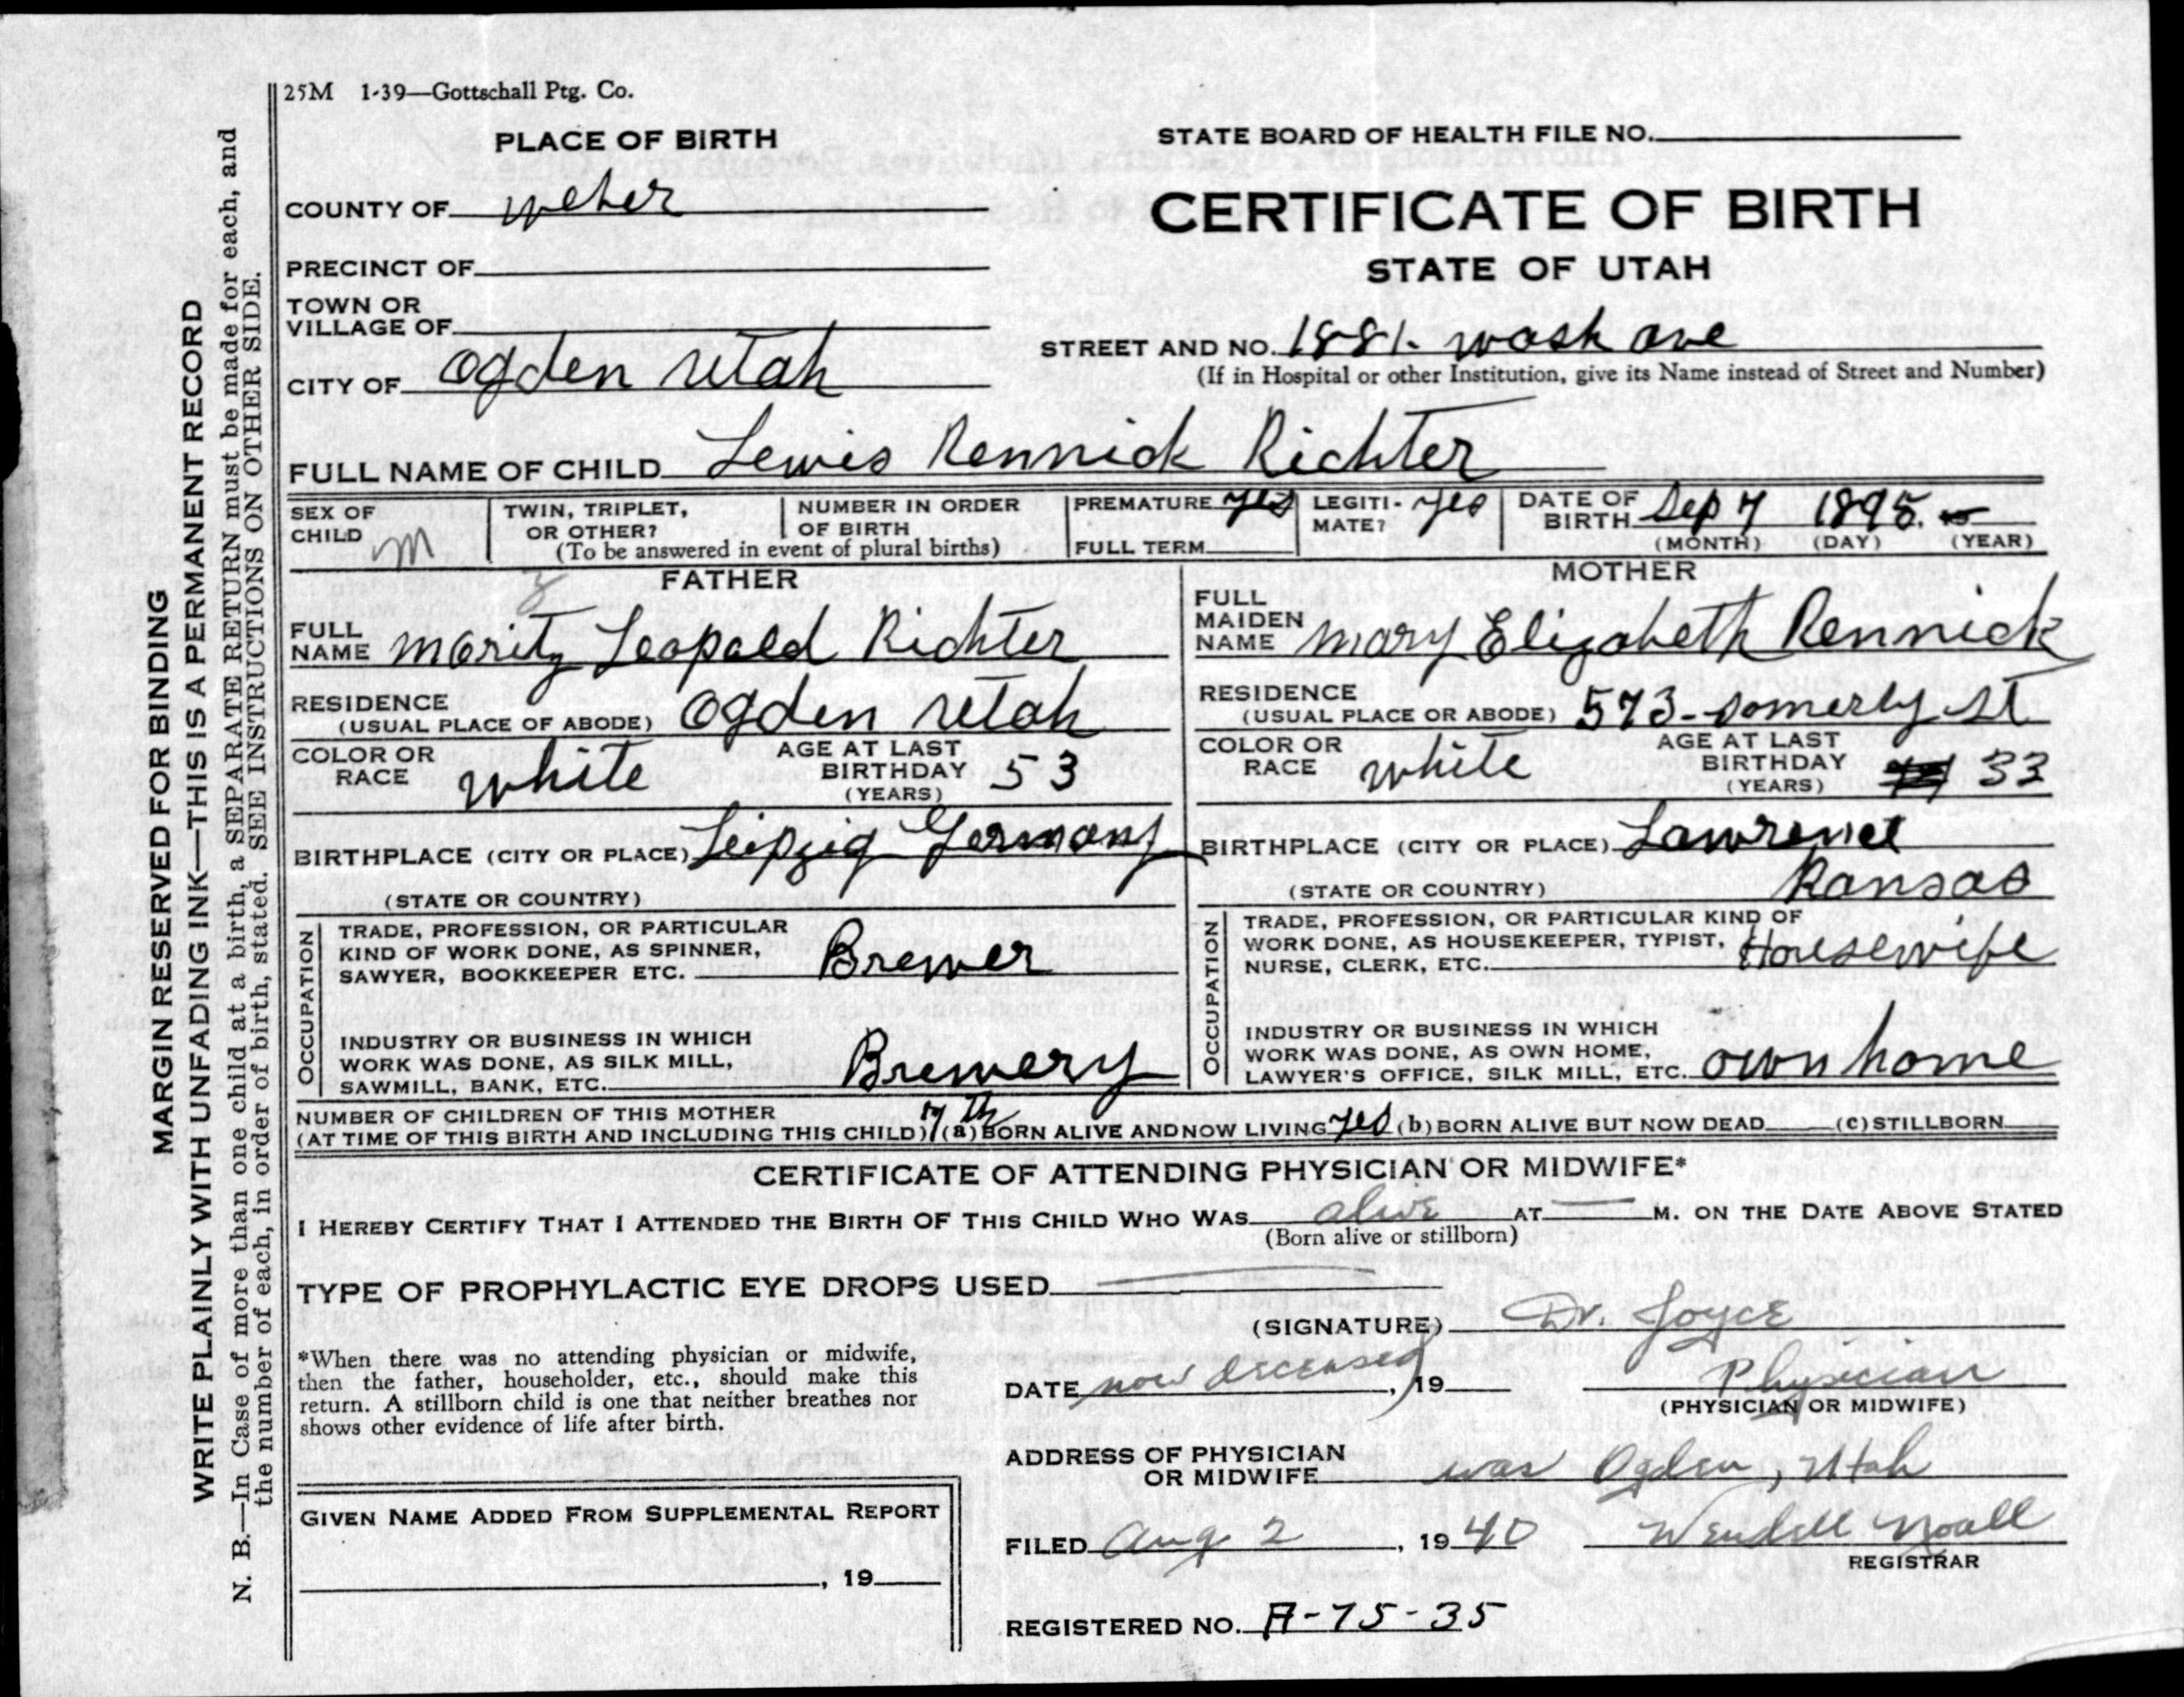 25M 1-39—Gottschall Ptg. Co.
PLACE OF BIRTH
STATE BOARD OF HEALTH FILE NO.
COUNTY OF weber
CERTIFICATE OF BIRTH
PRECINCT OF
STATE OF UTAH
TOWN OR
VILLAGE OF
STREET AND NO. 1881. wash ave
(If in Hospital or other Institution, give its Name instead of Street and Number)
CITY OF Ogden Utah
FULL NAME OF CHILD Lewis Rennick Richter
SEX OF CHILD m
TWIN, TRIPLET, OR OTHER?
NUMBER IN ORDER OF BIRTH
(To be answered in event of plural births)
PREMATURE yes
FULL TERM
LEGITI- MATE? yes
DATE OF BIRTH Sep 7 1895.
(MONTH) (DAY) (YEAR)
FATHER
FULL NAME Moritz Leopold Richter
RESIDENCE
(USUAL PLACE OF ABODE) Ogden Utah
COLOR OR RACE white
AGE AT LAST BIRTHDAY 53
(YEARS)
BIRTHPLACE (CITY OR PLACE) Leipzig Germany
(STATE OR COUNTRY)
OCCUPATION
TRADE, PROFESSION, OR PARTICULAR
KIND OF WORK DONE, AS SPINNER,
SAWYER, BOOKKEEPER ETC. Brewer
INDUSTRY OR BUSINESS IN WHICH
WORK WAS DONE, AS SILK MILL,
SAWMILL, BANK, ETC. Brewery
MOTHER
FULL MAIDEN NAME Mary Elizabeth Rennick
RESIDENCE
(USUAL PLACE OR ABODE) 573- St
COLOR OR RACE white
AGE AT LAST BIRTHDAY 33
(YEARS)
BIRTHPLACE (CITY OR PLACE) Lawrence
(STATE OR COUNTRY) Kansas
OCCUPATION
TRADE, PROFESSION, OR PARTICULAR KIND OF
WORK DONE, AS HOUSEKEEPER, TYPIST,
NURSE, CLERK, ETC. Housewife
INDUSTRY OR BUSINESS IN WHICH
WORK WAS DONE, AS OWN HOME,
LAWYER'S OFFICE, SILK MILL, ETC. own home
NUMBER OF CHILDREN OF THIS MOTHER
(AT TIME OF THIS BIRTH AND INCLUDING THIS CHILD) 7th (a) BORN ALIVE AND NOW LIVING yes (b) BORN ALIVE BUT NOW DEAD (c) STILLBORN
CERTIFICATE OF ATTENDING PHYSICIAN OR MIDWIFE*
I HEREBY CERTIFY THAT I ATTENDED THE BIRTH OF THIS CHILD WHO WAS alive AT — M. ON THE DATE ABOVE STATED
(Born alive or stillborn)
TYPE OF PROPHYLACTIC EYE DROPS USED —
(SIGNATURE) Dr. Joyce
*When there was no attending physician or midwife,
then the father, householder, etc., should make this
return. A stillborn child is one that neither breathes nor
shows other evidence of life after birth.
DATE now deceased, 19
Physician
(PHYSICIAN OR MIDWIFE)
ADDRESS OF PHYSICIAN
OR MIDWIFE was Ogden, Utah
GIVEN NAME ADDED FROM SUPPLEMENTAL REPORT
, 19
FILED Aug 2, 1940 Wendell Noall
REGISTRAR
REGISTERED NO. A-75-35
MARGIN RESERVED FOR BINDING
WRITE PLAINLY WITH UNFADING INK—THIS IS A PERMANENT RECORD
N. B.—In Case of more than one child at a birth, a SEPARATE RETURN must be made for each, and
the number of each, in order of birth, stated. SEE INSTRUCTIONS ON OTHER SIDE.